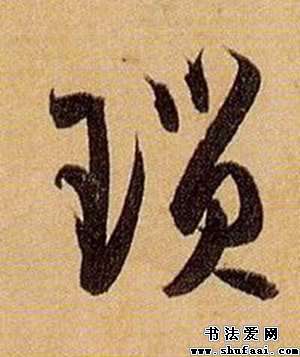 瑣
书法爱网
www.shufaai.com